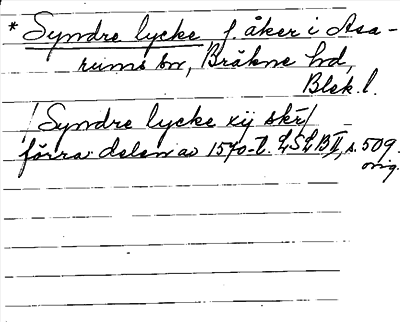 * Syndre lycke f åker i Asa-
rums sn, Bräkne hd,
Blek. l.
/Syndre lycke xij skr/
förra delen av 1570-t. LSLB II, s. 509.
orig.